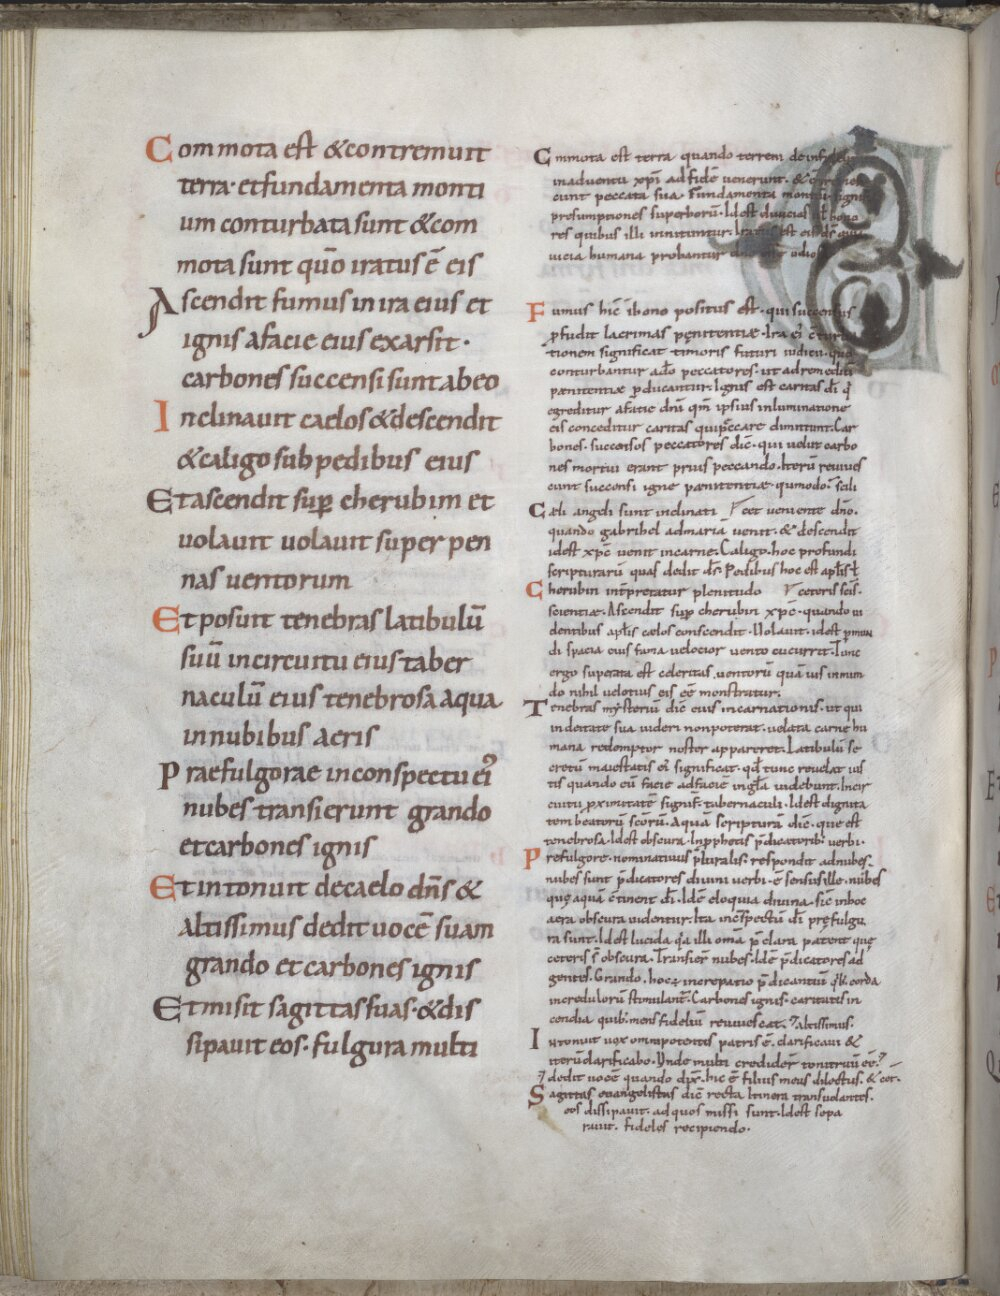 Commota est & contremuit
terra· et fundamenta monti
um conturbata sunt & com
mota sunt quō iratus ē eis
Ascendit fumus in ira eius et
ignis a facie eius exarsit·
carbones succensi sunt ab eo
Inclinauit caelos & descendit
& caligo sub pedibus eius
Et ascendit sup̄ cherubim et
uolauit uolauit super pen
nas uentorum
Et posuit tenebras latibulū
suū in circuitu eius taber
naculū eius tenebrosa aqua
in nubibus aeris
Praefulgorae in conspectu ei᾽
nubes transierunt grando
et carbones ignis
Et intonuit de caelo dn̄s &
altissimus dedit uocē suam
grando et carbones ignis
Et misit sagittas suas· & dis
sipauit eos· fulgura multi
Cmmota est terra quando terreni de
in aduentu xp̄i ad fidē uenerunt· &
cunt peccata sua· Fundamenta
presumptiones superborū· Idest diuicias
res quibus illi innituntur· Iratus est eis
uicia humana probantur odio
Fumus hic ībono positus est· qui succensus
p̄fudit lacrimas pęnitentiae· Ira ei
tionem significat timoris futuri iudicii· quo
conturbantur peccatores· ut ad remediū
paenitentiae p̄ducantur· Ignis est caritas dī q̄
egreditur a facie dn̄i qm̄ ipsius inluminatione
eis conceditur caritas qui peccare dimittunt· Car
bones· succensos peccatores dic̄· qui uelut carbo
nes mortui erant prius peccando· Iterū reuiues
cunt succensi igne paenitentiae· qumodo· scili
Caeli angeli sunt inclinati cet ueniente dn̄o·
quando gabrihel ad mariā uenit· & descendit
idest xp̄c uenit in carne· Caligo· hoc profundi
scripturarū quas dedit dī· Pedibus hoc est apl̄is
Cherubin int̄pretatur plenitudo ceteris scis·
scientiae· Ascendit sup̄ cherubin xp̄c· quando ui
dentibus apl̄is caelos conscendit· Uolauit· idest p̄
di spacia eius fama uelocior uento cucurrit· Tunc
ergo superata est celeritas uentorū quā uis in mun
do nihil uelotius eis eē monstratur·
Tenebras mysteriū dic̄ eius incarnationis· ut qui
in deitate sua uideri non poterat· uelata carne hu
mana redemptor noster appareret· Latibulū se
cretū maiestatis ei significat· qd̄ tunc reuelat ius
tis quando eū facie ad faciē in gl̄a uidebunt· In cir
cuitu pximitatē signif̄· tabernaculi· Idest dignita
tem beatorum scorū· Aquā scripturā dic̄· que est
tenebrosa· Idest obscura· In p̄phetis p̄dicatorib· uerbi·
Prefulgore· nominatiuus pluralis· respondit ad nubes·
nubes sunt p̄dicatores diuini uerbi· ē sensus ille· nubes
quę aquā c̄tinent dī· Idē eloquia diuina· sic̄ in hoc
aera obscura uidentur· Ita in c̄spectū dī pręfulgu
ra sunt· Idest lucida q̄a illi omā p̄clara patent quę
ceteris s̄ obscura· Transier̄ nubes· Idē p̄dicatores ad
gentes· Grando· hoc ē increpatio p̄dicantiū corda
incredulorū stimulant̄· Carbones ignis· caritatis in
cendia quib· mens fideliū reuiuescat· altissimus·
Intonuit uox omnipotentis patris ē· clarificaui &
iterū clarificabo· Unde multi credider̄ tonitruū eē·
dedit uocē quando dix̄· hic ē filius meus dilectus· & cet·
Sagittas euangelistas dic̄ recta itinera transuolantes·
eos dissipauit· ad quos missi sunt· Idest sepa
rauit· fideles recipiendo·